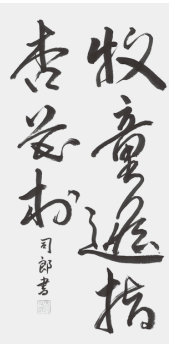 牧童遥指
杏花村
司郎書